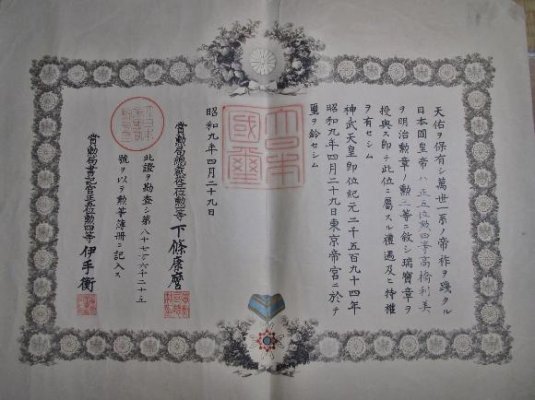 天佑ヲ保有シ萬世一系ノ帝祚ヲ踐タル
日本國皇帝ハ正五位勲四等高橋利美
ヲ明治勲章ノ勲三等ニ敍シ瑞寶章ヲ
授與ス即チ此位ニ屬スル禮遇及ヒ特權
ヲ有セシム
神武天皇即位紀元二千五百九十四年
昭和九年四月二十九日東京帝宮ニ於テ
璽ヲ鈐セシム
大日本
國璽
昭和九年四月二十九日
賞勲局總裁 位勲 等 下條康麿
此證ヲ勘査シ第八十七 六千二十五
號ヲ以テ勲等簿冊ニ記入ス
賞勲局書記官正五位勲四等 伊手衡